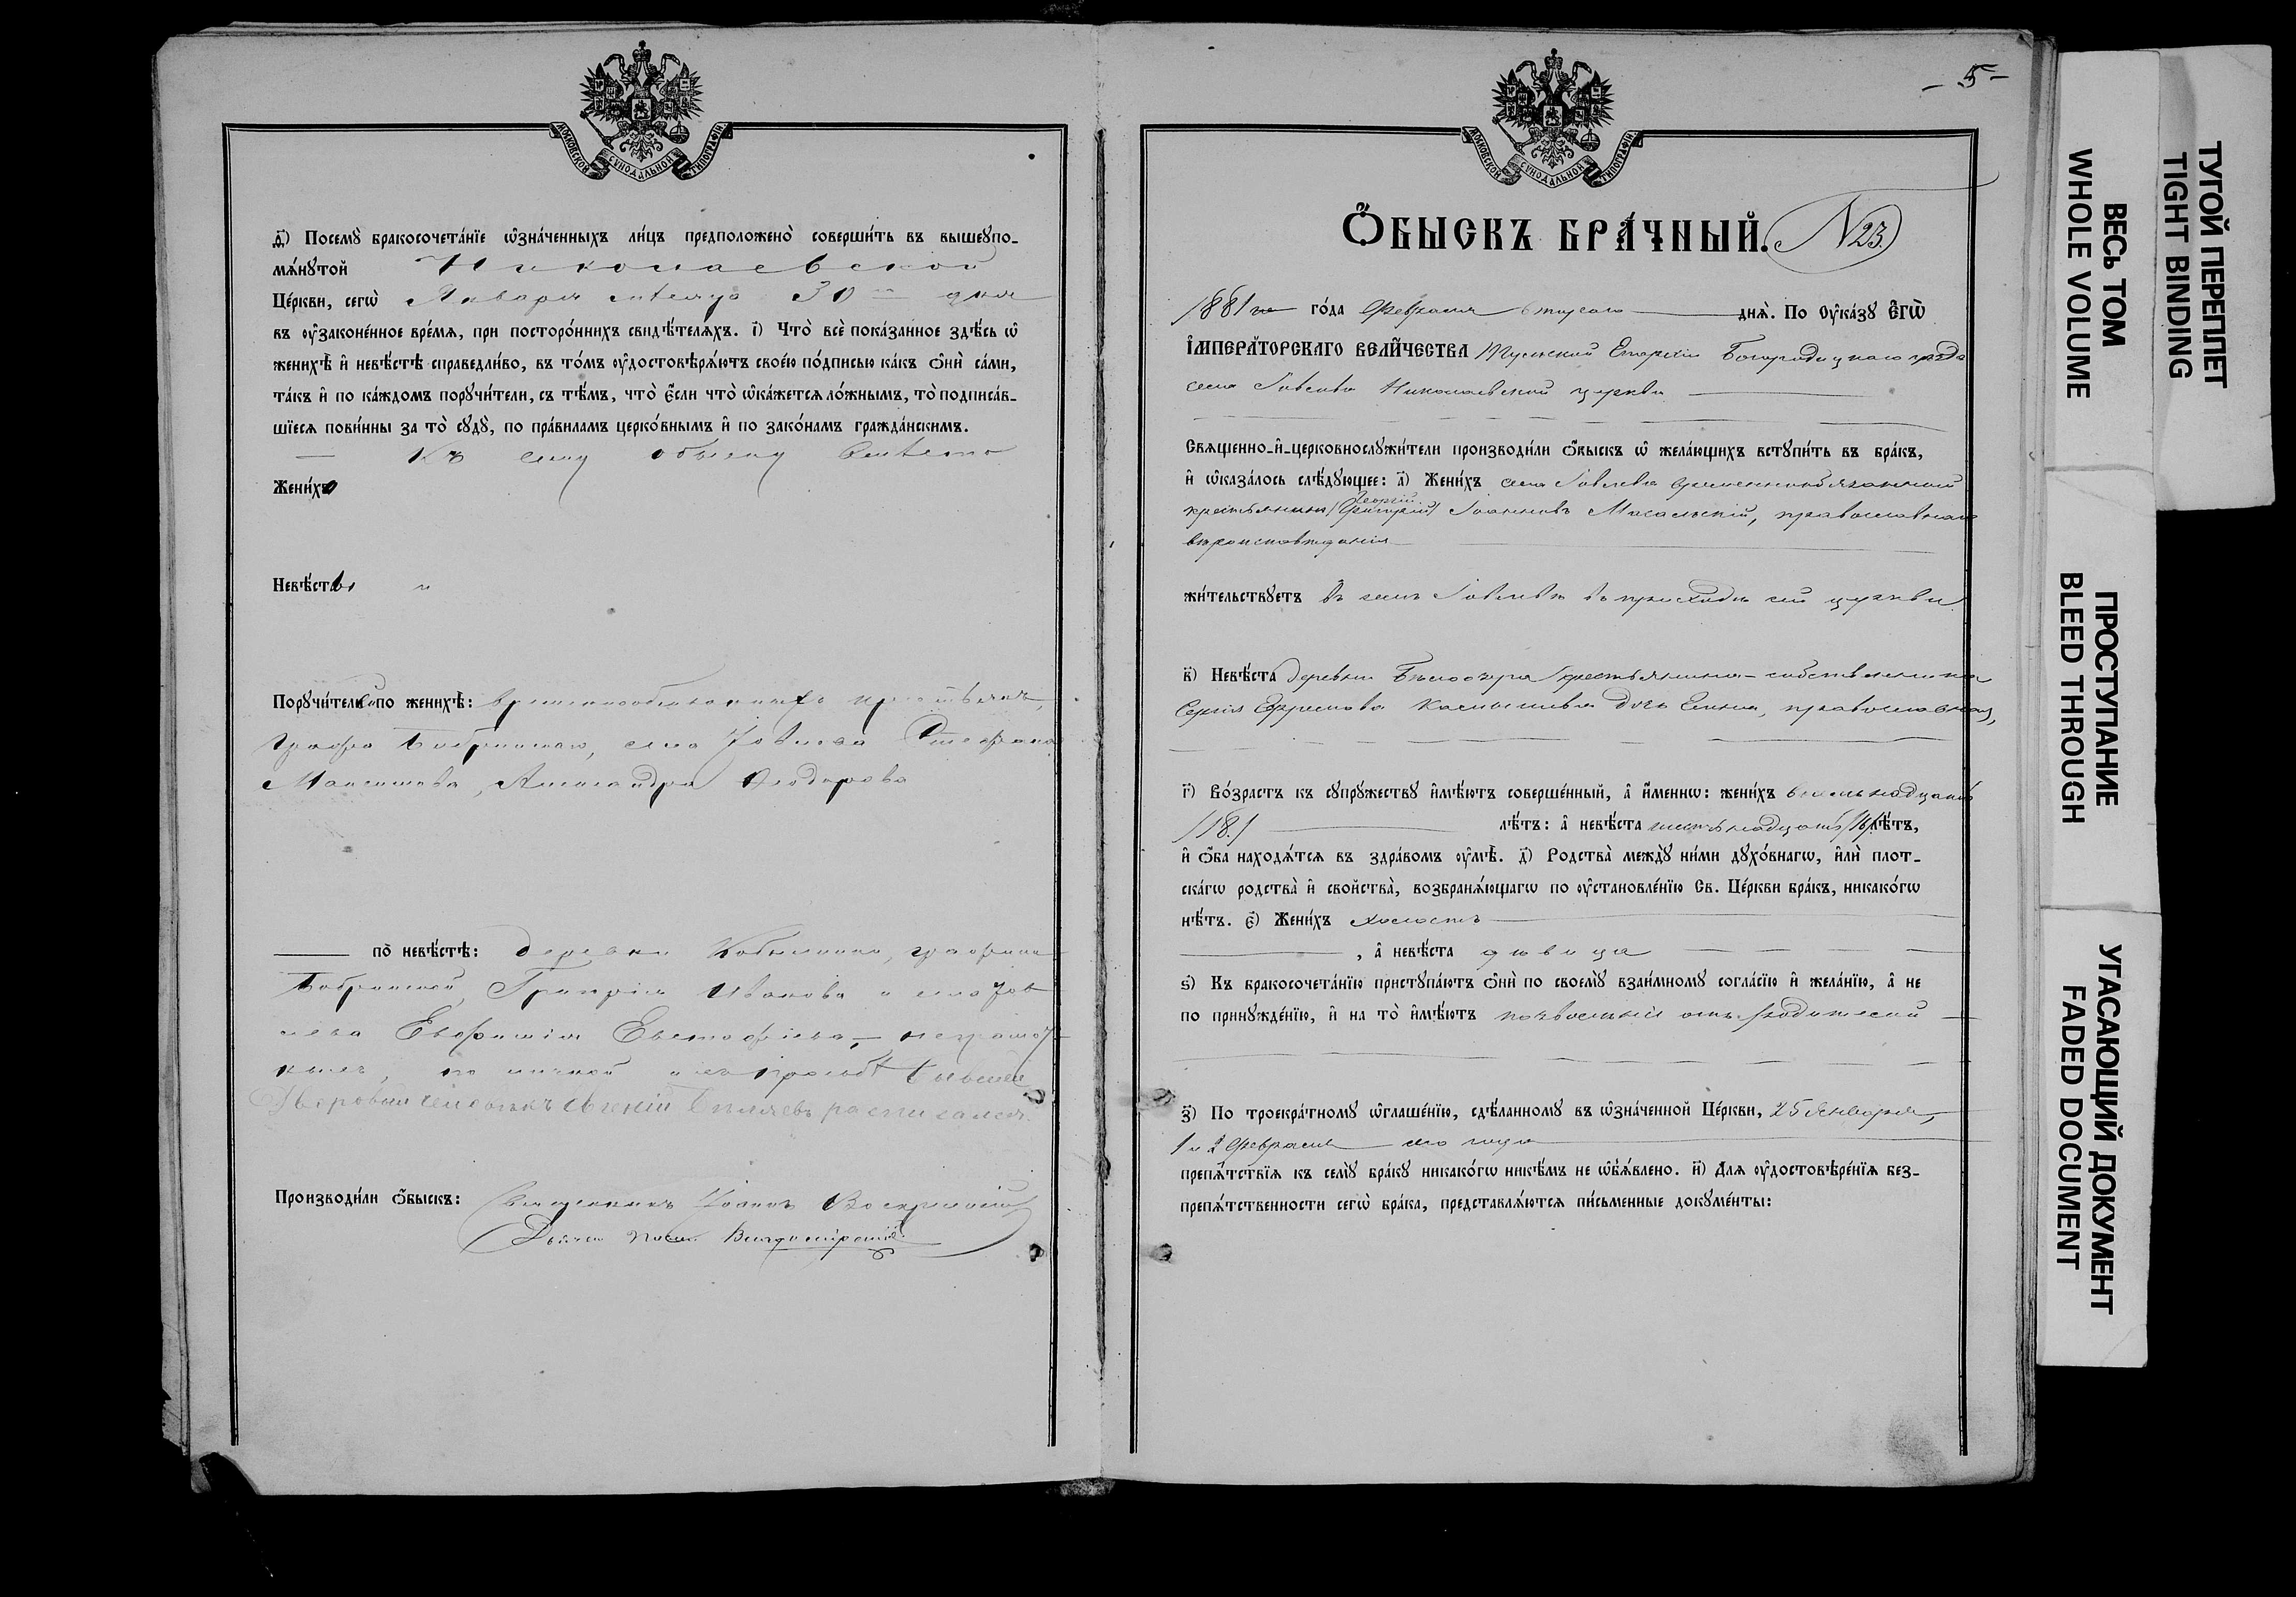 МОСКОВСКОЙ СУНОДАЛЬНОЙ ТИПОГРАФІИ
д҃) Посемꙋ̀ бракосочета́нїе ѡ҆зна́ченныхъ ли́цъ предположено̀ соверши́ть въ вышеꙋпо-
мѧ́нꙋтой Николаевской
Це́ркви, сегѡ̀ Января месяца 30 дня
въ ᲂу҆законе́нное вре́мѧ, при посторо́ннихъ свидѣ́телѧхъ. і҃) Что̀ всѐ пока́занное здѣ́сь ѡ҆
женихѣ̀ и҆ невѣ́стѣ справедли́во, въ то́мъ ᲂу҆достовѣрѧ́ютъ свое́ю по́дписью ка́къ ѻ҆нѝ са́ми,
та́къ и҆ по ка́ждомъ порꙋчи́тели, съ тѣ́мъ, что̀ є҆́сли что̀ ѡ҆ка́жетсѧ ло́жнымъ, то̀ подписа́в-
шїесѧ пови́нны за то̀ сꙋдꙋ̀, по пра́виламъ церко́внымъ и҆ по зако́намъ гражда́нскимъ.
Къ сему обыску
Жени́хъ
Невѣ́ста и
Порꙋчи́тели по женихѣ̀: временнообязанныхъ крестьянъ,
графа Бобринскаго, села Іовлева Стефана
Максимова, Александра Ѳеодорова
по̀ невѣ́стѣ: деревни графини
Бобринской, Григорія Иванова и села Іов
лева Евфимія Евстафіева, неграмот
ныхъ, по личной ихъ просьбѣ бывшій
дворовый человѣкъ Евгеній Бѣляевъ расписался.
Производи́ли ѻ҆́быскъ: Священникъ Іоаннъ Воскресенскій
Дьячекъ
- 5 -
МОСКОВСКОЙ СУНОДАЛЬНОЙ ТИПОГРАФІИ
Ѻ҆́БЫСКЪ БРА́ЧНЫЙ. N 23.
1881 го го́да Февраля втораго днѧ̀. По Оу҆ка́зꙋ Є҆гѡ̀
І҆МПЕРА́ТОРСКАГО ВЕЛИ́ЧЕСТВА Тульской Епархіи Богородицкаго уѣзда
села Іовлева Николаевской церкви
Свѧщенно-и҆-церковнослꙋжи́тели производи́ли ѻ҆́быскъ ѡ҆ жела́ющихъ встꙋпи́ть въ бра́къ,
и҆ ѡ҆каза́лось слѣ́дꙋющее: а҃) Жени́хъ села Іовлева временнообязанный
Георгій
крестьянинъ (Григорій) Іоанновъ Масальскій, православнаго
вѣроисповѣданія
жи́тельствꙋетъ въ селѣ Іовлевѣ въ приходѣ сей церкви
в҃) Невѣ́ста деревни Бѣлоозера крестьянина-собственника
Сергія Ефремова дочь Елена, православная,
г҃) Во́зрастъ къ сꙋпрꙋ́жествꙋ и҆мѣ́ютъ соверше́нный, а҆ и҆́меннѡ: жени́хъ восьмнадцать
/18./ лѣ́тъ: а҆ невѣ́ста шестьнадцать /16/ лѣ́тъ,
и҆ ѻ҆́ба нахо́дѧтсѧ въ здра́вомъ ᲂу҆мѣ̀. д҃) Родства̀ междꙋ̀ ни́ми дꙋхо́внагѡ, и҆лѝ плот-
ска́гѡ родства̀ и҆ сво́йства, возбранѧ́ющагѡ по ᲂу҆становле́нїю Св. Це́ркви бра́къ, никако́гѡ
нѣ́тъ. є҃) Жени́хъ холостъ
, а҆ невѣ́ста дѣвица
ѕ҃) Къ бракосочета́нїю пристꙋпа́ютъ ѻ҆нѝ по своемꙋ̀ взаи́мномꙋ согла́сїю и҆ жела́нїю, а҆ не
по принꙋжде́нїю, и҆ на то̀ и҆мѣ́ютъ позволеніе отъ родителей
з҃) По троекра́тномꙋ ѡ҆глаше́нїю, сдѣ́ланномꙋ въ ѡ҆зна́ченной Це́ркви, 25 Января,
1 и 2 Февраля сего года
препѧ́тствїѧ къ семꙋ̀ бра́кꙋ никако́гѡ нике́мъ не ѡ҆б̾ѧ́влено. и҃) Длѧ ᲂу҆достовѣре́нїѧ без-
препѧ́тственности сегѡ̀ бра́ка, представлѧ́ютсѧ пи́сьменные докꙋме́нты:
ВЕСЬ ТОМ
WHOLE VOLUME
ТУГОЙ ПЕРЕПЛЕТ
TIGHT BINDING
ПРОСТУПАНИЕ
BLEED THROUGH
УГАСАЮЩИЙ ДОКУМЕНТ
FADED DOCUMENT